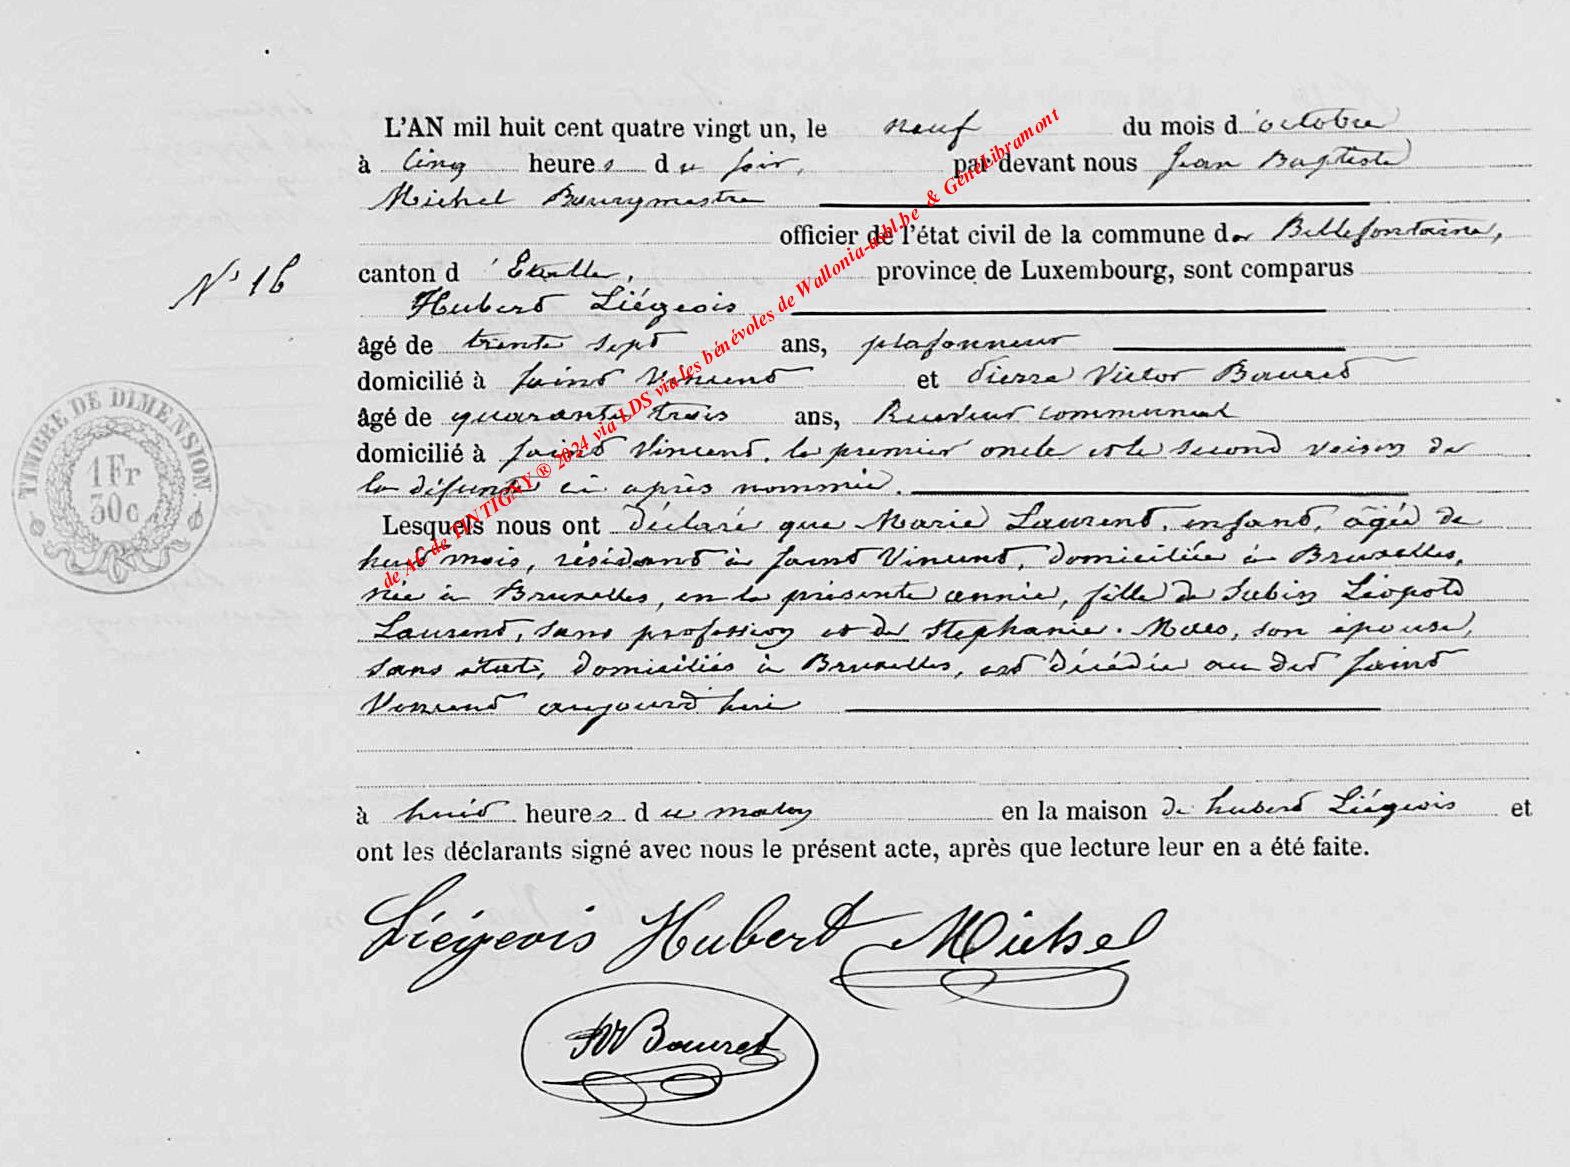 L'AN mil huit cent quatre vingt un, le neuf du mois d'octobre
à cinq heures du soir, par devant nous Jean Baptiste
Michel Bourgmestre
officier de l'état civil de la commune de Bellefontaine,
canton d'Etalle, province de Luxembourg, sont comparus
N° 16
Hubert Liégeois
âgé de trente sept ans, plafonneur
domicilié à Saint Vincent et Pierre Victor Bauret
âgé de quarante trois ans, Receveur communal
domicilié à Saint Vincent, le premier oncle et le second voisin de
la défunte ci après nommée.
Lesquels nous ont déclaré que Marie Laurent, enfant, âgée de
mois, résidant à Saint Vincent, domiciliée à Bruxelles,
née à Bruxelles, en la présente année, fille de Sabin Léopold
Laurent, sans profession et de Stephanie Maes, son épouse,
sans état, domiciliés à Bruxelles, est décédée au dit Saint
Vincent aujourd'hui
à huit heures du matin en la maison de hubert Liégeois et
ont les déclarants signé avec nous le présent acte, après que lecture leur en a été faite.
Liégeois Hubert Michel
PV Bauret
TIMBRE DE DIMENSION.
1 Fr
30c
de AC de TINTIGNY ® 2024 via LDS via les bénévoles de Wallonia-asbl.be & GeneLibramont